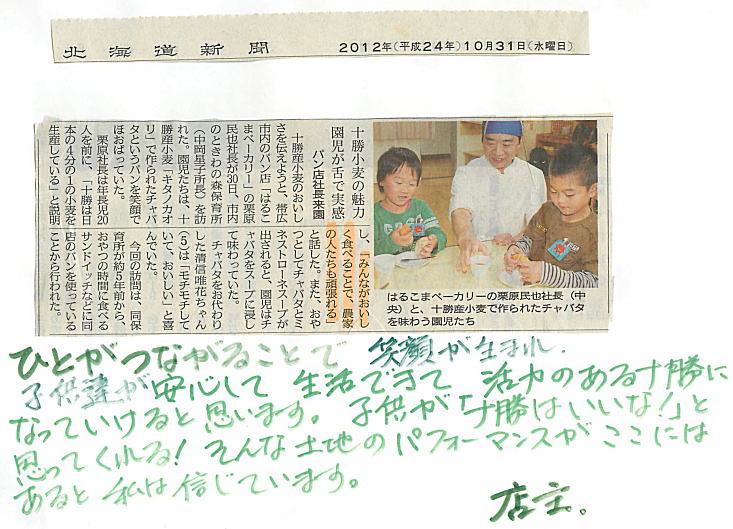 北海道新聞 2012年(平成24年)10月31日(水曜日)
十勝小麦の魅力
園児が舌で実感
パン店社長来園
十勝産小麦のおいし
さを伝えようと、帯広
市内のパン店「はるこ
まベーカリー」の栗原
民也社長が30日、市内
のときわの森保育所
(中岡星子所長)を訪
れた。園児たちは、十
勝産小麦「キタノカオ
リ」で作られたチャバ
タというパンを笑顔で
ほおばっていた。
栗原社長は年長児20
人を前に、「十勝は日
本の4分の1の小麦を
生産している」と説明
し、「みんながおいし
く食べることで、農家
の人たちも頑張れる」
と話した。また、おや
つとしてチャバタとミ
ネストローネスープが
出されると、園児はチ
ャバタをスープに浸し
て味わっていた。
チャバタをお代わり
した清信唯花ちゃん
(5)は「モチモチして
いて、おいしい」と喜
んでいた。
今回の訪問は、同保
育所が約5年前から、
おやつの時間に食べる
サンドイッチなどに同
店のパンを使っている
ことから行われた。
はるこまベーカリーの栗原民也社長(中
央)と、十勝産小麦で作られたチャバタ
を味わう園児たち
ひとがつながることで 笑顔が生まれ、
子供達が安心して 生活できて 活力のある十勝に
なっていけると思います。子供が「十勝はいいな!」と
思ってくれる!そんな土地のパフォーマンスがここには
あると私は信じています。
店主。